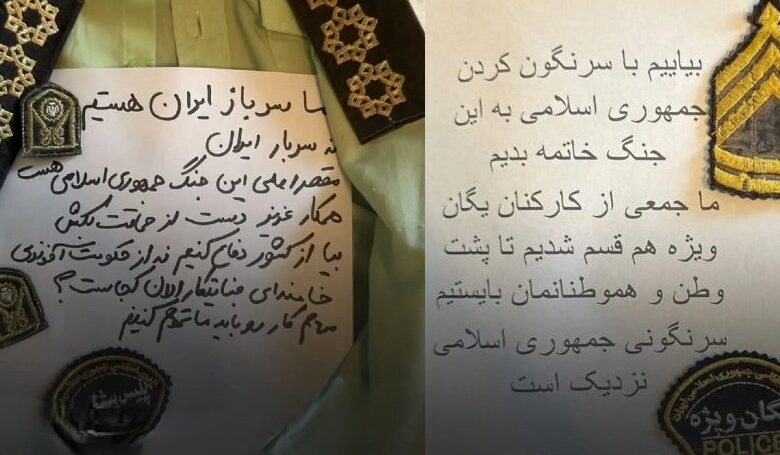 ما سرباز ایران هستیم
نه سربار ایران
مقصر اصلی این جنگ جمهوری اسلامی هست
همکار عزیز دست از حماقت بکش
بیا از کشور دفاع کنیم نه از حکومت آخوندی
خامنه‌ای جنایتکار الان کجاست؟
کار رو باید ما تموم کنیم
پلیس
بیاییم با سرنگون کردن
جمهوری اسلامی به این
جنگ خاتمه بدیم
ما جمعی از کارکنان یگان
ویژه هم قسم شدیم تا پشت
وطن و هموطنانمان بایستیم
سرنگونی جمهوری اسلامی
نزدیک است
یگان ویژه
POLICE